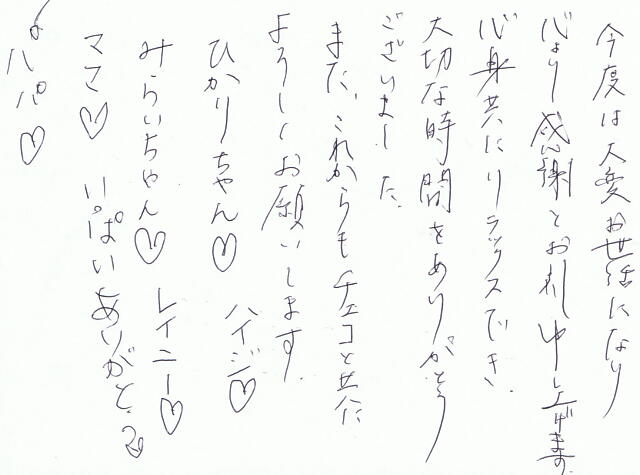 今度は大変お世話になり
心より感謝とお礼申し上げます
心身共にリラックスでき、
大切な時間をありがとう
ございました。
また、これからもチェコと共に
よろしくお願いします。
ひかりちゃん♡ ハイジ♡
みらいちゃん♡ レイニー♡
ママ♡ いっぱいありがと
パパ♡